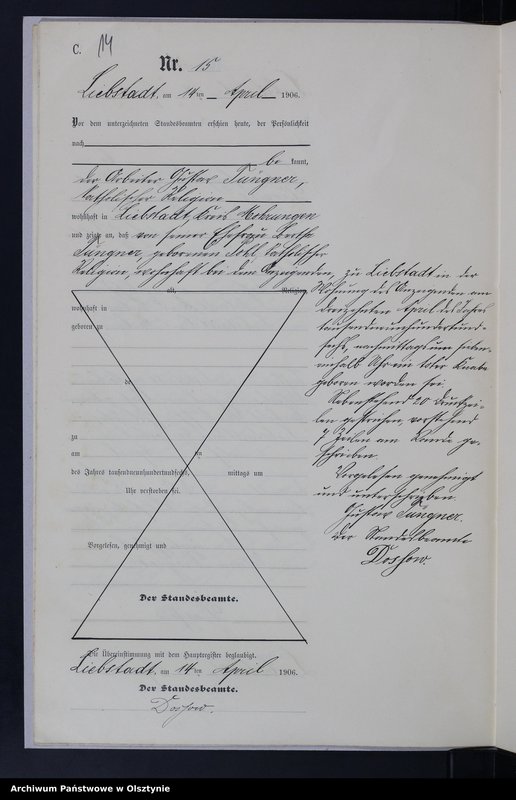 C. 14
Nr. 15
Liebstadt, am 14 ten April 1906.
Vor dem unterzeichneten Standesbeamten erschien heute, der Persönlichkeit
nach
be kannt,
der Arbeiter Gustav Tüngner,
katholischer Religion
wohnhaft in Liebstadt, Kreis Mohrungen
und zeigte an, daß von seiner Ehefrau
Tüngner, geborenen katholischer
Religion, wohnhaft bei dem Anzeigenden,
zu Liebstadt in der
Wohnung des Anzeigenden am
dreizehnten April des Jahres
tausendneunhundertund-
sechs, nachmittags um sieben-
einhalb Uhr ein toter Knabe
geboren worden sei.
Nebenstehend 20 Druckzei-
len gestrichen, vorstehend
7 Zeilen am Rande ge-
schrieben.
Vorgelesen genehmigt
und unterschrieben
Gustav Tüngner.
Der Standesbeamte
Doskow.
alt, Religion,
wohnhaft in
geboren zu
de
zu
am ten
des Jahres tausendneunhundertundsechs, mittags um
Uhr verstorben sei.
Vorgelesen, genehmigt und
Der Standesbeamte.
Die Übereinstimmung mit dem Hauptregister beglaubigt.
Liebstadt, am 14 ten April 1906.
Der Standesbeamte.
Doskow.
Archiwum Państwowe w Olsztynie